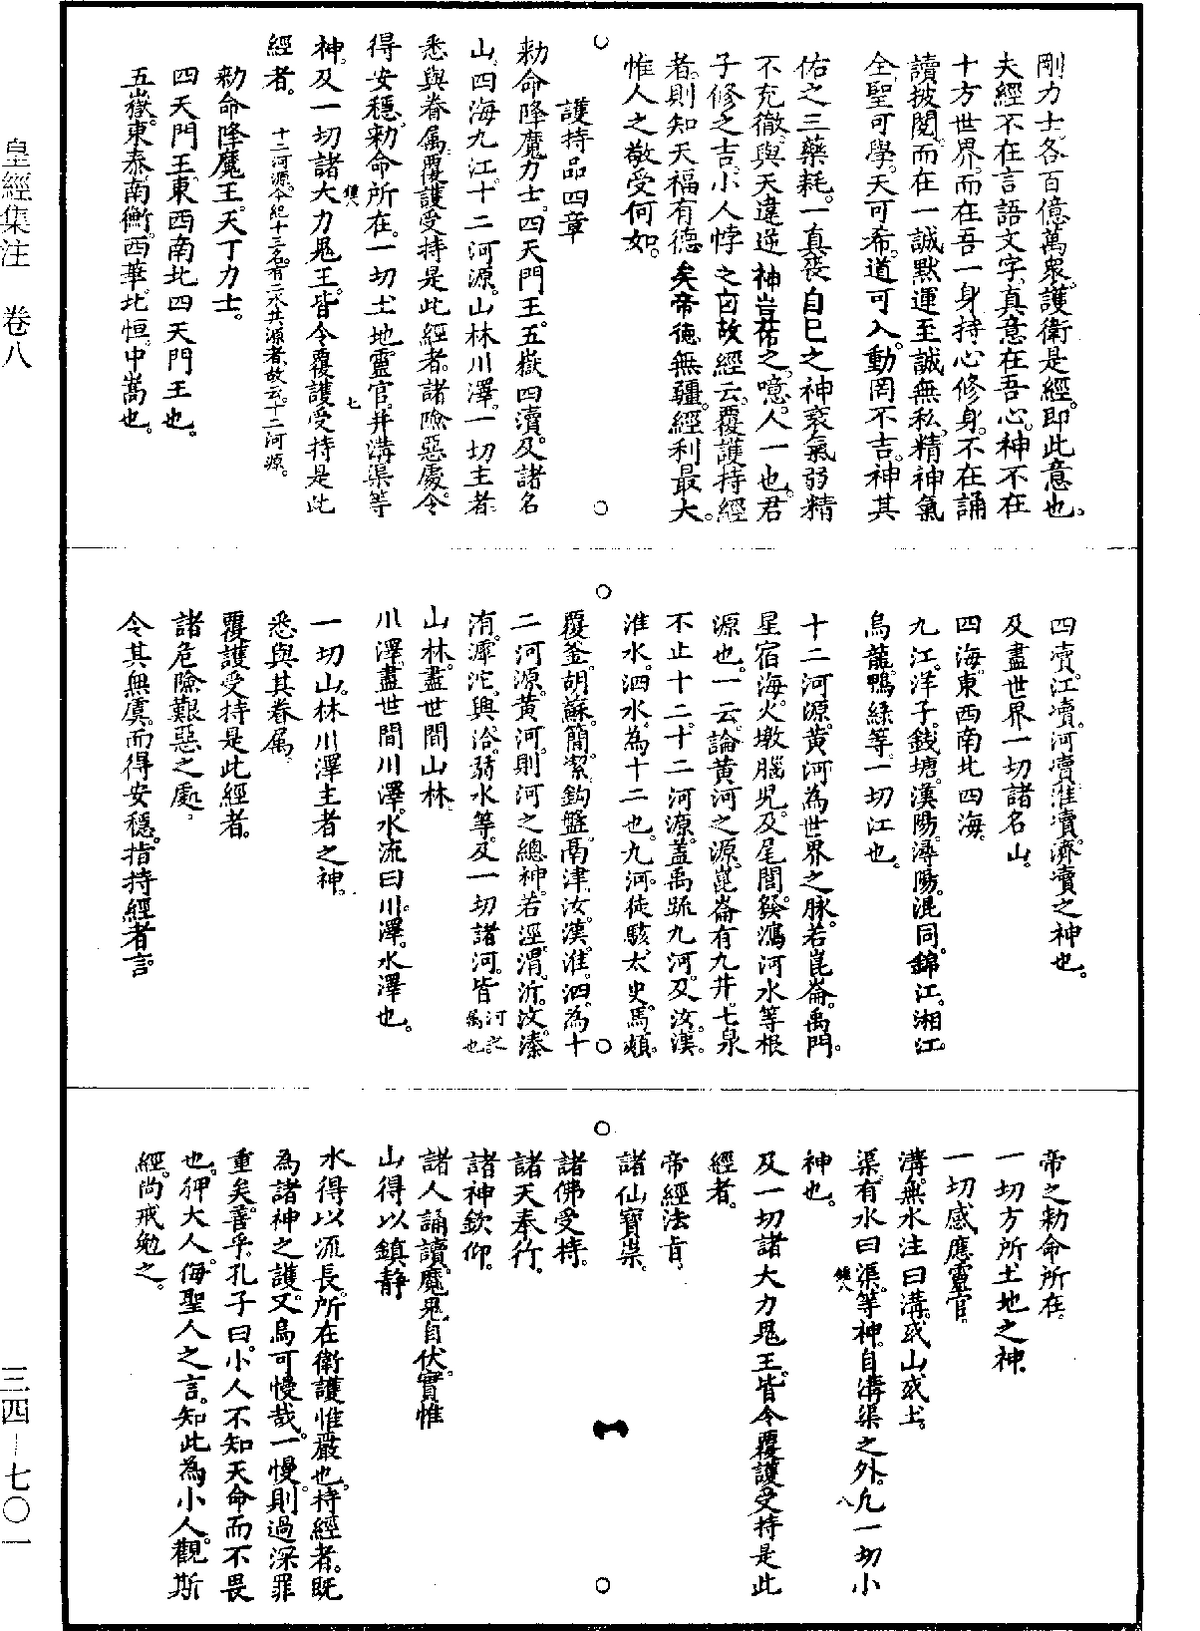 皇經集注 卷八
三四—七〇一
剛力士。各百億萬眾。護衛是經。即此意也。
夫經不在言語文字。真意在吾心。神不在
十方世界。而在吾一身。持心修身。不在誦
讀披閱。而在一誠默運。至誠無私。精神氣
全。聖可學。天可希。道可入。動罔不吉。神其
佑之。三藥耗。一真喪。自己之神衰氣弱。精
不充徹。與天違逆。神豈祐之。噫。人一也。君
子修之吉。小人悖之凶。故經云。覆護持經
者。則知天福有德矣。帝德無疆。經利最大。
惟人之敬受何如。
護持品四章
勑命降魔力士。四天門王。五嶽四瀆。及諸名
山。四海九江。十二河源。山林川澤。一切主者。
悉與眷属。覆護受持是此經者。諸險惡處。令
得安穩。勑命所在。一切土地靈官。并溝渠等
神。及一切諸大力鬼王。皆令覆護受持是此
經者。十二河源。今紀十三名。有二水共源者。故云。十二河源。
勑命降魔王。天丁力士。
四天門王。東西南北四天門王也。
五嶽。東泰。南衡。西華。北恒。中嵩也。
四瀆。江瀆。河瀆。淮瀆。濟瀆之神也。
及盡世界一切諸名山。
四海。東西南北四海。
九江。洋子。錢塘。漢陽。潯陽。混同。錦江。湘江。
烏龍。鴨綠等。一切江也。
十二河源。黃河為世界之脉。若崑崙。禹門。
星宿海。火墩腦兒。及尾閭。發鴻河水等根
源也。一云。論黃河之源。崑崙有九井。七泉
不止十二。十二河源。蓋禹疏九河。及汝。漢。
淮水。泗水。為十二也。九河。徒駭。太史。馬頰。
覆釜。胡蘇。簡。潔。鈎盤。鬲津。汝。漢。淮。泗。為十
二河源。黃河。則河之總神。若涇。渭。沂。汶。溱
洧。滹沱。興洽。弱水等。及一切諸河。皆河之屬也
山林。盡世間山林。
川澤。盡世間川澤。水流曰川。澤。水澤也。
一切山。林川澤主者之神。
悉與其眷属。
覆護受持是此經者。
諸危險艱惡之處。
令其無虞。而得安穩。指持經者言。
帝之勑命所在。
一切方所土地之神。
一切感應靈官。
溝。無水注曰溝。或山或土。
渠。有水曰渠。等神。自溝渠之外。凡一切小
神也。
及一切諸大力鬼王。皆令覆護受持是此
經者。
帝經法旨。
諸仙寶崇。
諸佛受持。
諸天奉行。
諸神欽仰。
諸人誦讀。魔鬼自伏。實惟
山得以鎮靜
水得以流長。所在衛護惟嚴也。持經者。既
為諸神之護。又烏可慢哉。一慢。則過深罪
重矣。善乎。孔子曰。小人不知天命而不畏
也。狎大人。侮聖人之言。知此為小人。觀斯
經。尚戒勉之。